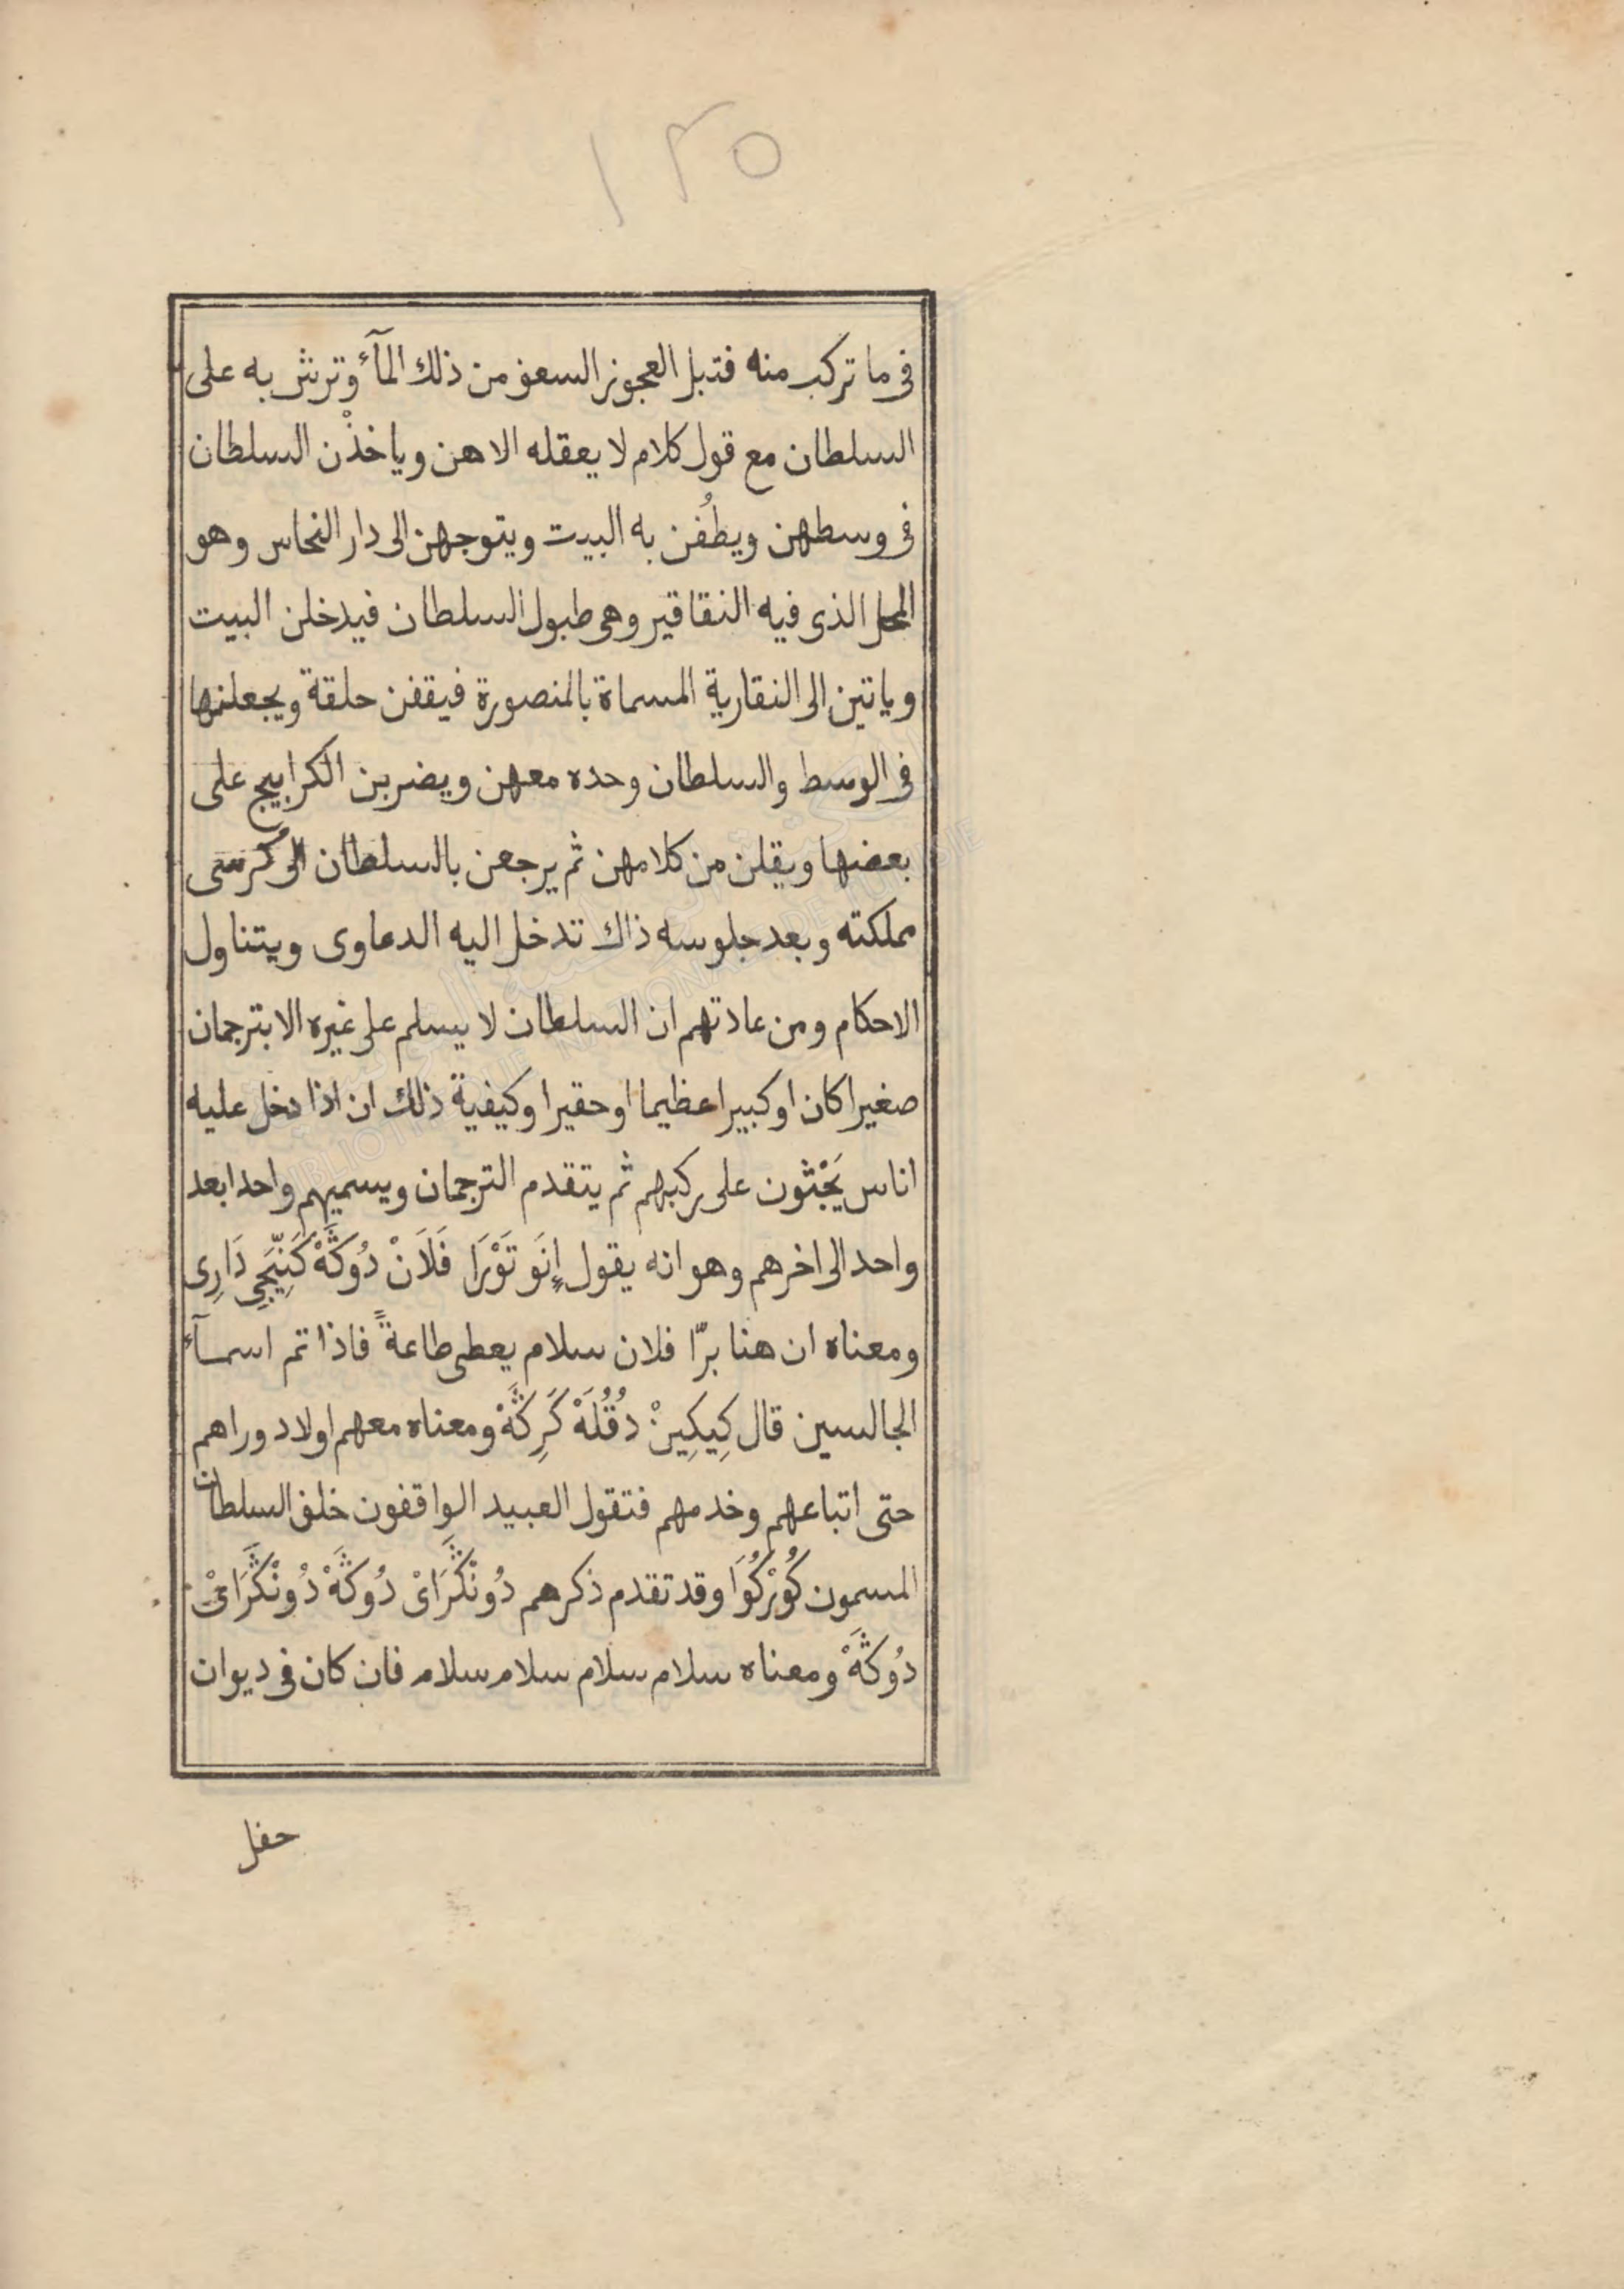 ١٣٥
فى ما تركب منه فتبل العجوز السعف من ذلك المآء وترش به على
السلطان مع قول كلام لا يعقله الا هن وياخذْن السلطان
فى وسطهن ويطُفن به البيت ويتوجهن الى دار النحاس وهو
المحل الذى فيه النقاقير وهى طبول السلطان فيدخلن البيت
وياتين الى النقارية المسماة بالمنصورة فيقفن حلقة ويجعلنها
فى الوسط والسلطان وحده معهن ويضربن الكرابيج على
بعضها ويقلن من كلامهن ثم يرجعن بالسلطان الى كُرسى
مملكته وبعد جلوسه ذاك تدخل اليه الدعاوى ويتناول
الاحكام ومن عادتهم ان السلطان لا يسلم على غيره الا بترجمان
صغيرا كان او كبيرا عظيما او حقيرا وكيفية ذلك ان اذا دخل عليه
اناس يَجْثون على ركبهم ثم يتقدم الترجمان ويسميهم واحدا بعد
واحد الى اخرهم وهو انه يقول إِنَو تَوْرَا فَلَانْ دُوڭَهْ كَنِّيَجِى دَارِى
ومعناه ان هنا برّا فلان سلام يعطى طاعةً فاذا تم اسمآء
الجالسين قال كِيكِينْ دُقُلَهْ كَرِڭَهْ ومعناه معهم اولاد وراهم
حتى اتباعهم وخدمهم فتقول العبيد الواقفون خلف السلطان
المسمون كُوْركُوَا وقد تقدم ذكرهم دُونْڭَرَاىْ دُوڭَهْ دُونْڭَرَاىْ
دُوڭَهْ ومعناه سلام سلام سلام سلام فان كان فى ديوان
حفل